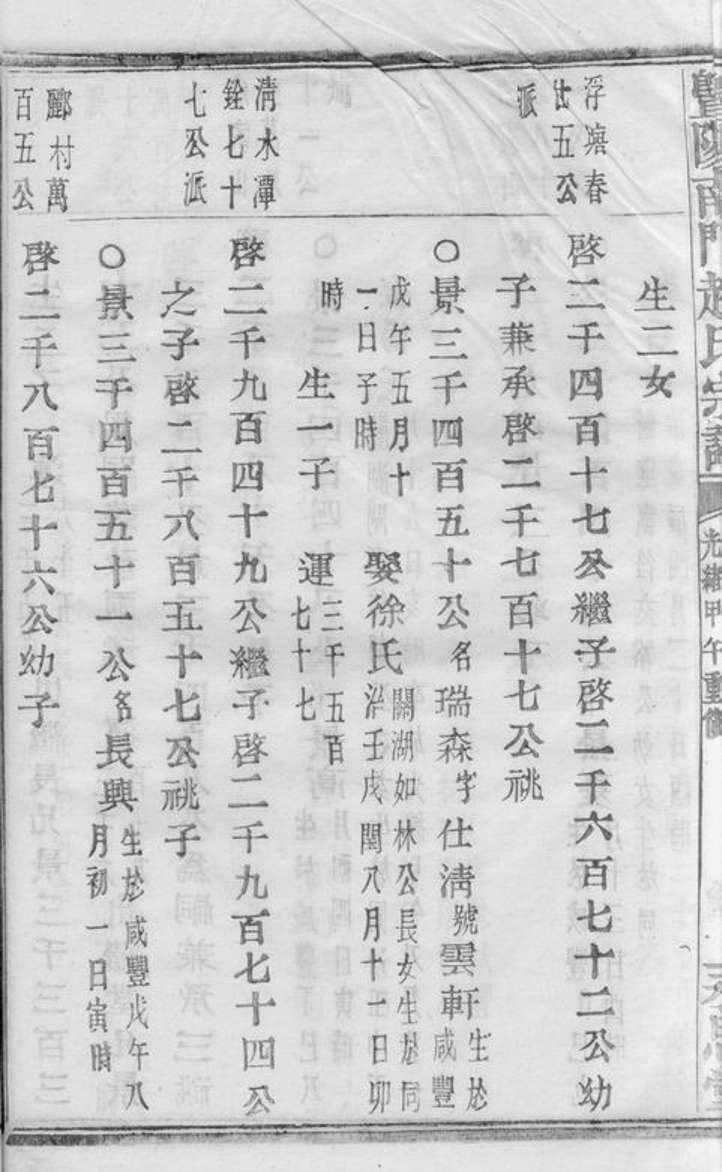 暨陽南門趙氏宗譜
光緒甲午重修
生二女
浮塘春
出五公
派
啓二千四百十七公繼子啓二千六百七十二公幼
子兼承啓二千七百十七公祧
○景三千四百五十公名瑞森字仕淸號雲軒生於咸豐
戊午五月十一日子時
娶徐氏關湖如林公長女生於同治壬戌閏八月十一日卯
時
生一子
運三千五百七十七
淸水潭
銓七十
七公派
啓二千九百四十九公繼子啓二千九百七十四公
之子啓二千八百五十七公祧子
○景三千四百五十一公名長興生於咸豐戊午八
月初一日寅時
酈村萬
百五公
啓二千八百七十六公幼子